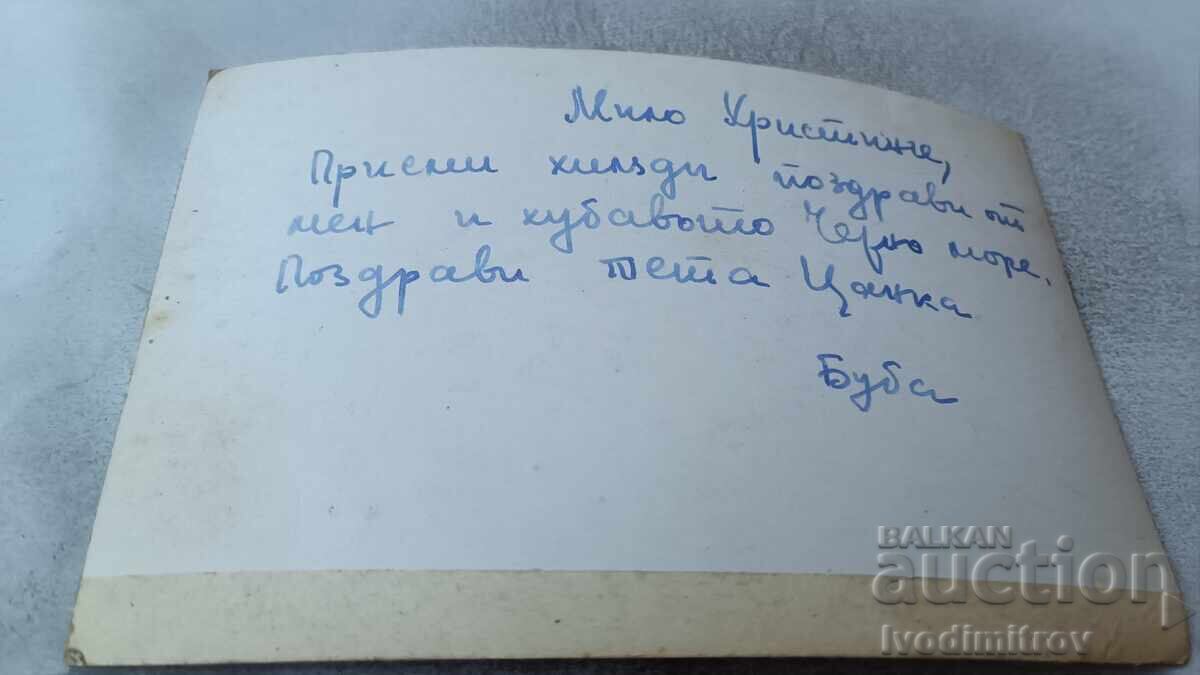 Мило Христинче,
Приеми хиляди поздрави от
мен и хубавото Черно море.
Поздрави тета Цанка
Буба
BALKAN
auction
Ivodimitrov